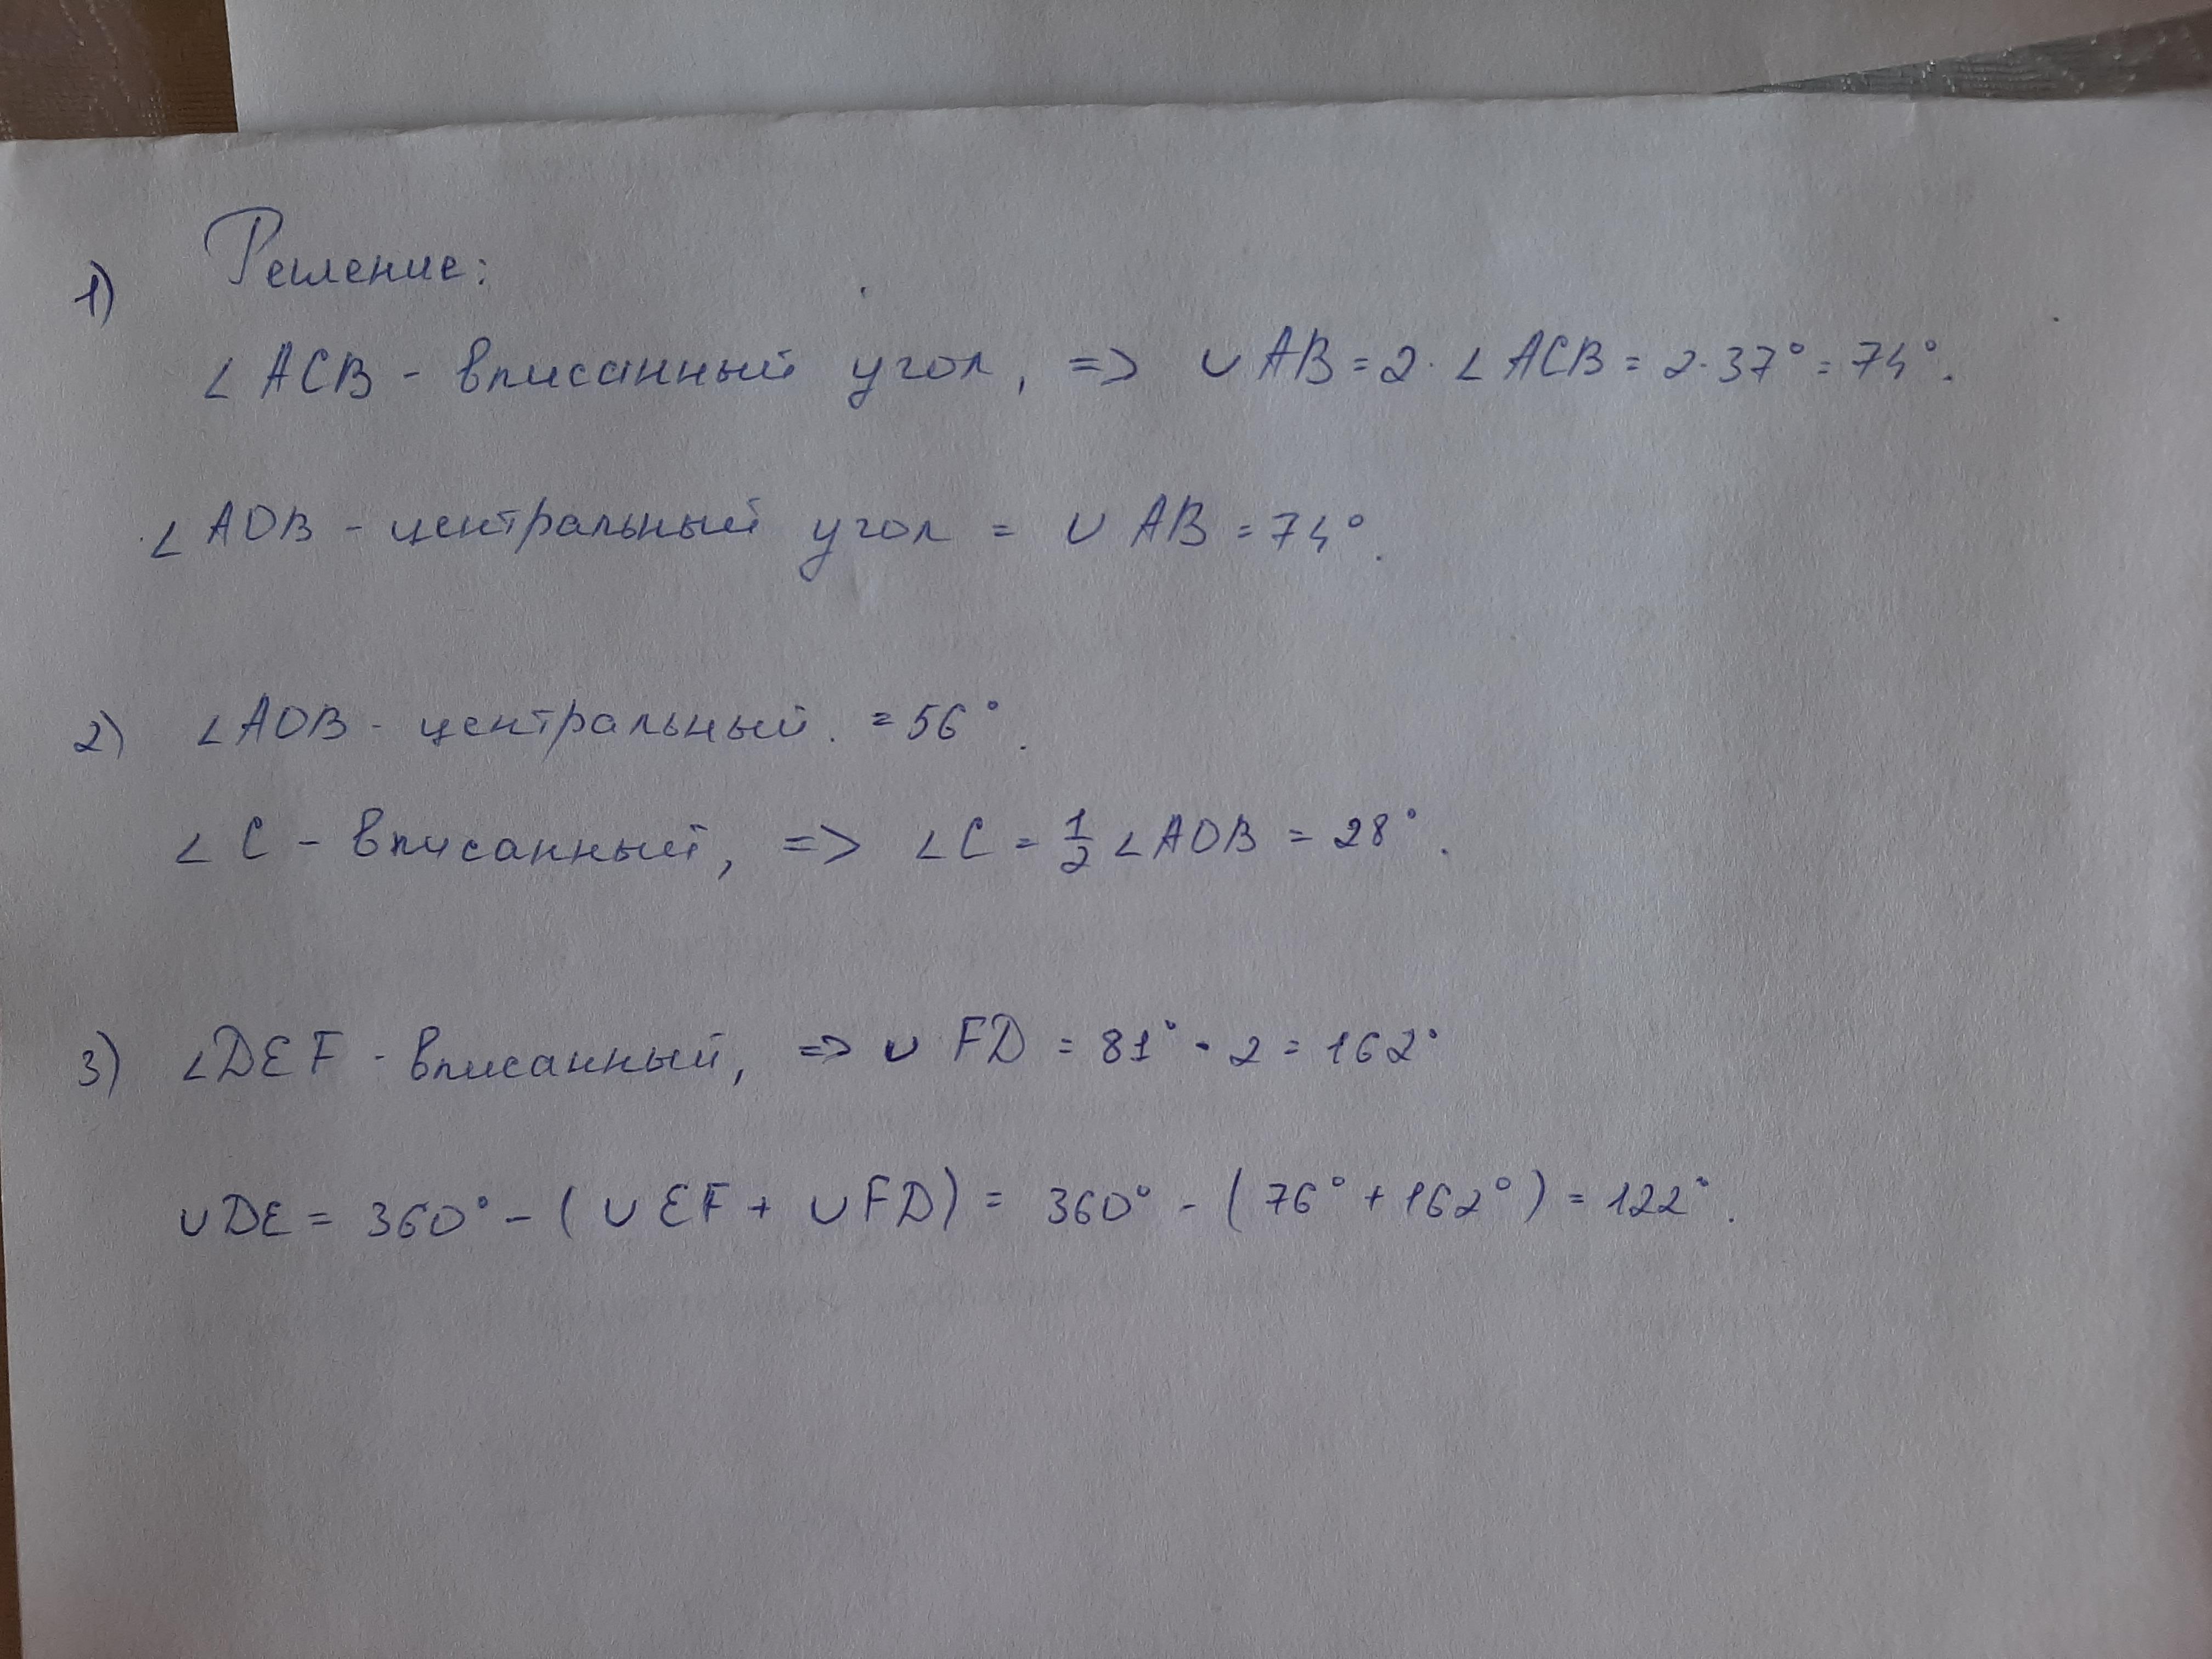 1) Решение:
∠ACB - вписанный угол, => ∪AB = 2 · ∠ACB = 2·37° = 74°.
∠AOB - центральный угол = ∪AB = 74°.
2) ∠AOB - центральный. = 56°.
∠C - вписанный, => ∠C = 1/2 ∠AOB = 28°.
3) ∠DEF - вписанный, => ∪FD = 81° · 2 = 162°
∪DE = 360° - (∪EF + ∪FD) = 360° - (76° + 162°) = 122°.